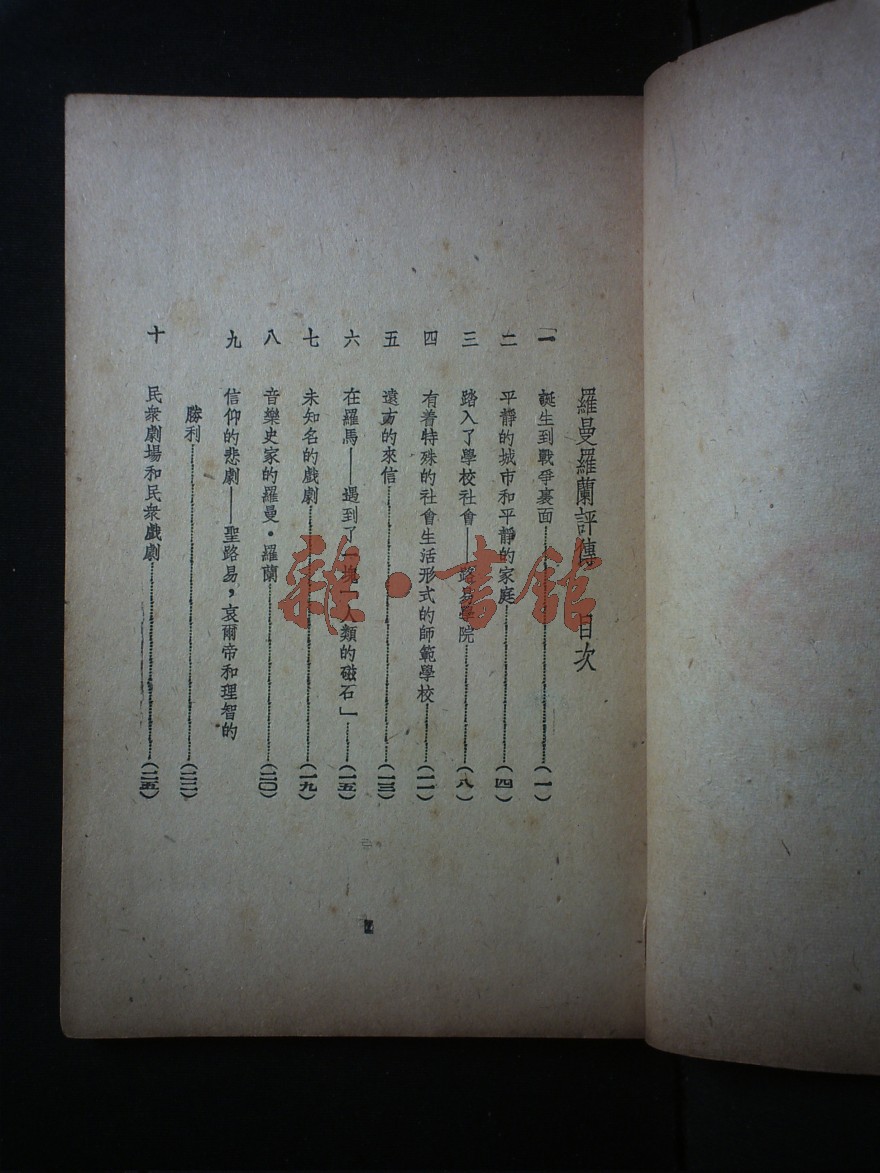 羅曼羅蘭評傳 目次
一 誕生到戰爭裏面……(一)
二 平靜的城市和平靜的家庭……(四)
三 踏入了學校社會——路易學院……(八)
四 有着特殊的社會生活形式的師範學校……(一一)
五 遠方的來信……(一三)
六 在羅馬——遇到了一塊「人類的磁石」……(一五)
七 未知名的戲劇……(一九)
八 音樂史家的羅曼·羅蘭……(二〇)
九 信仰的悲劇——聖路易,哀爾帝和理智的
勝利……(二二)
十 民衆劇場和民衆戲劇……(二五)
雜·書館